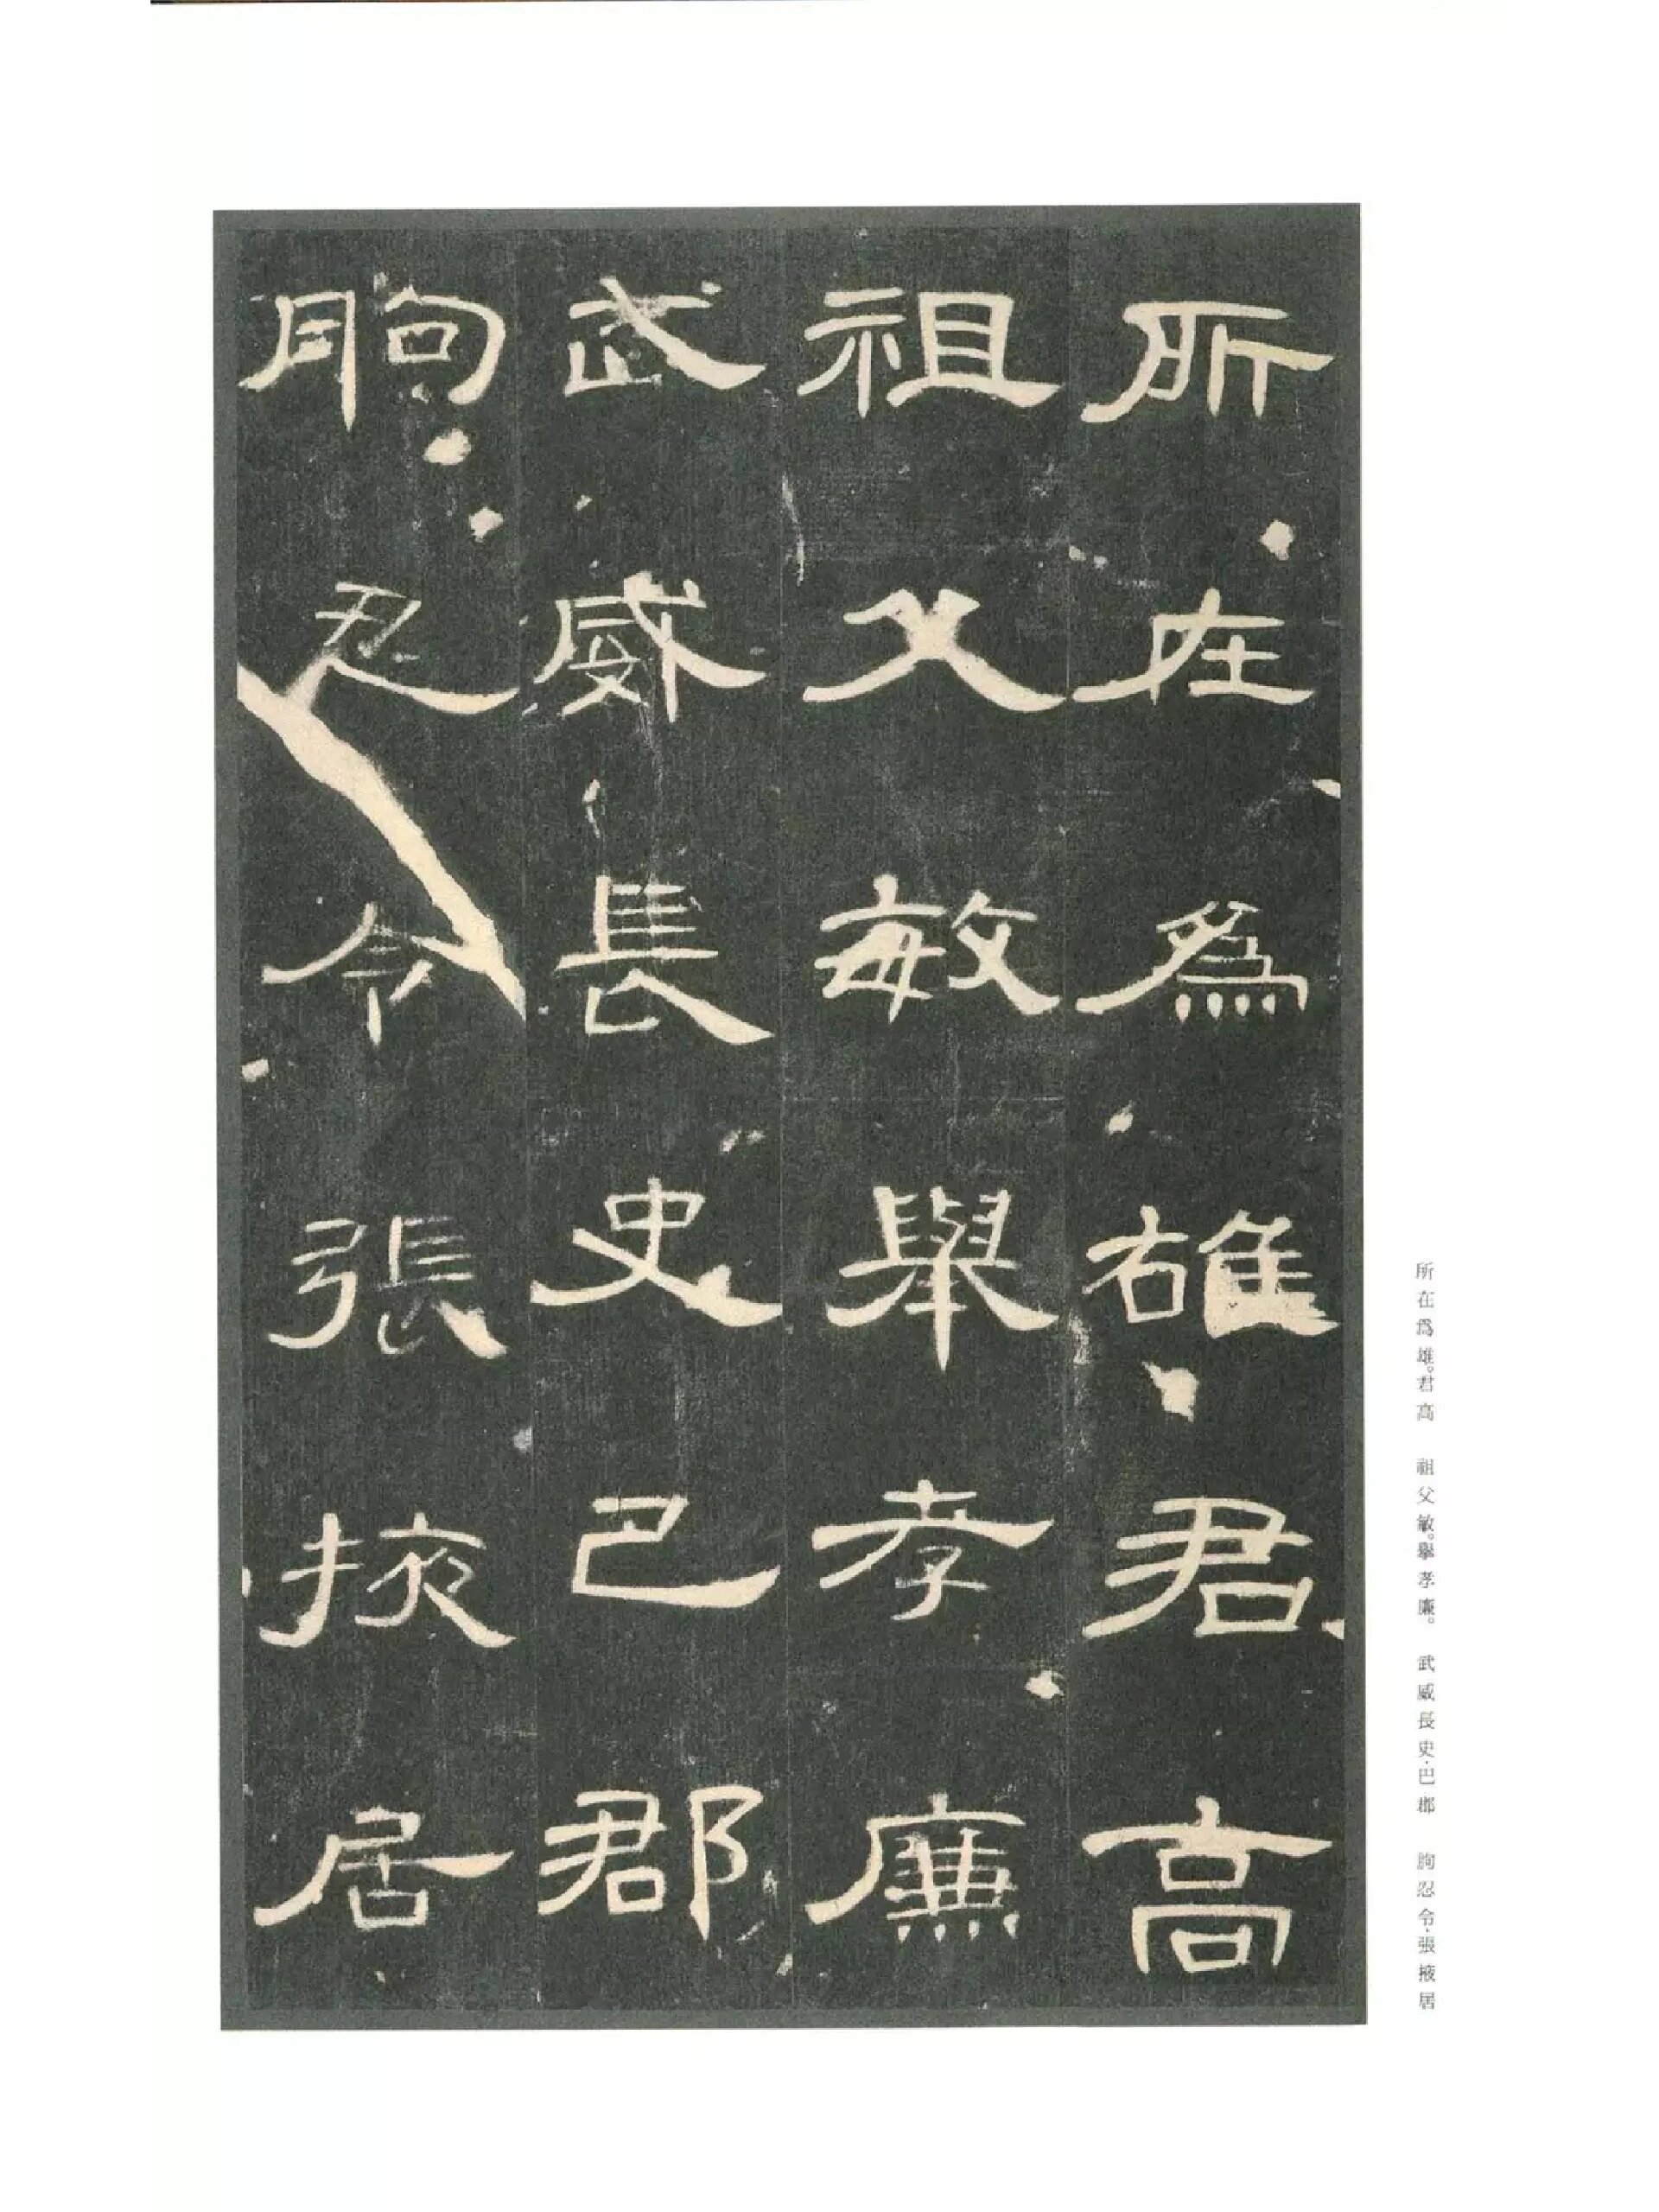 所在爲雄君高
祖父敏舉孝廉
武威長史巴郡
朐忍令張掖居
所在爲雄。君高　祖父敏。舉孝廉。　武威長史·巴郡　朐忍令·張掖居